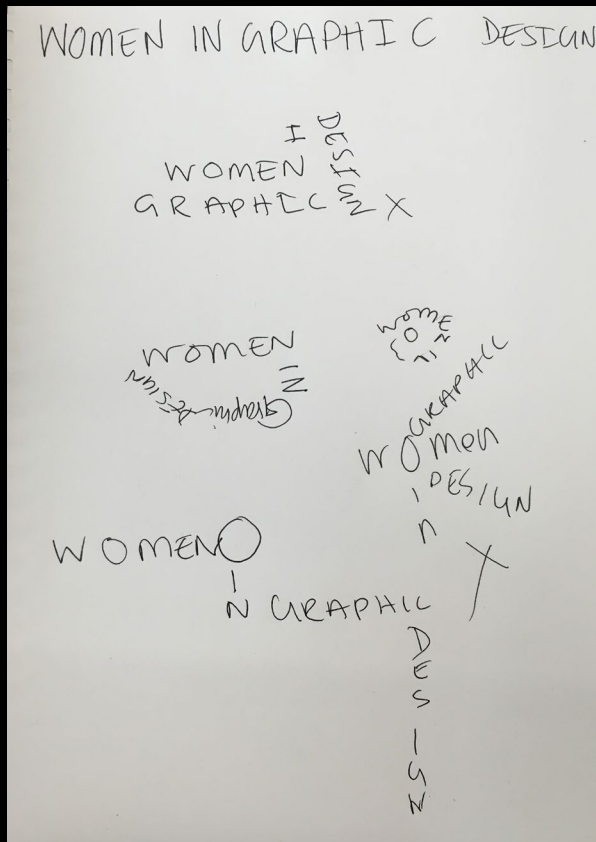 WOMEN IN GRAPHIC DESIGN
I
DESIGN
WOMEN
GRAPHIC X
WOMEN
IN
Graphic
DESIGN
WOME
N
IN
GRAPHIC
WOMEN
IN
DESIGN
WOMEN
IN GRAPHIC X
DESIGN